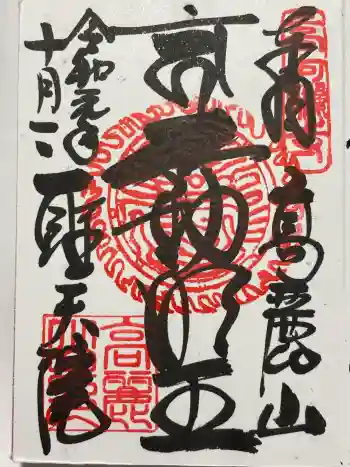 奉拝 高麗山
不動明王
令和元年
十月二
聖天院
高麗